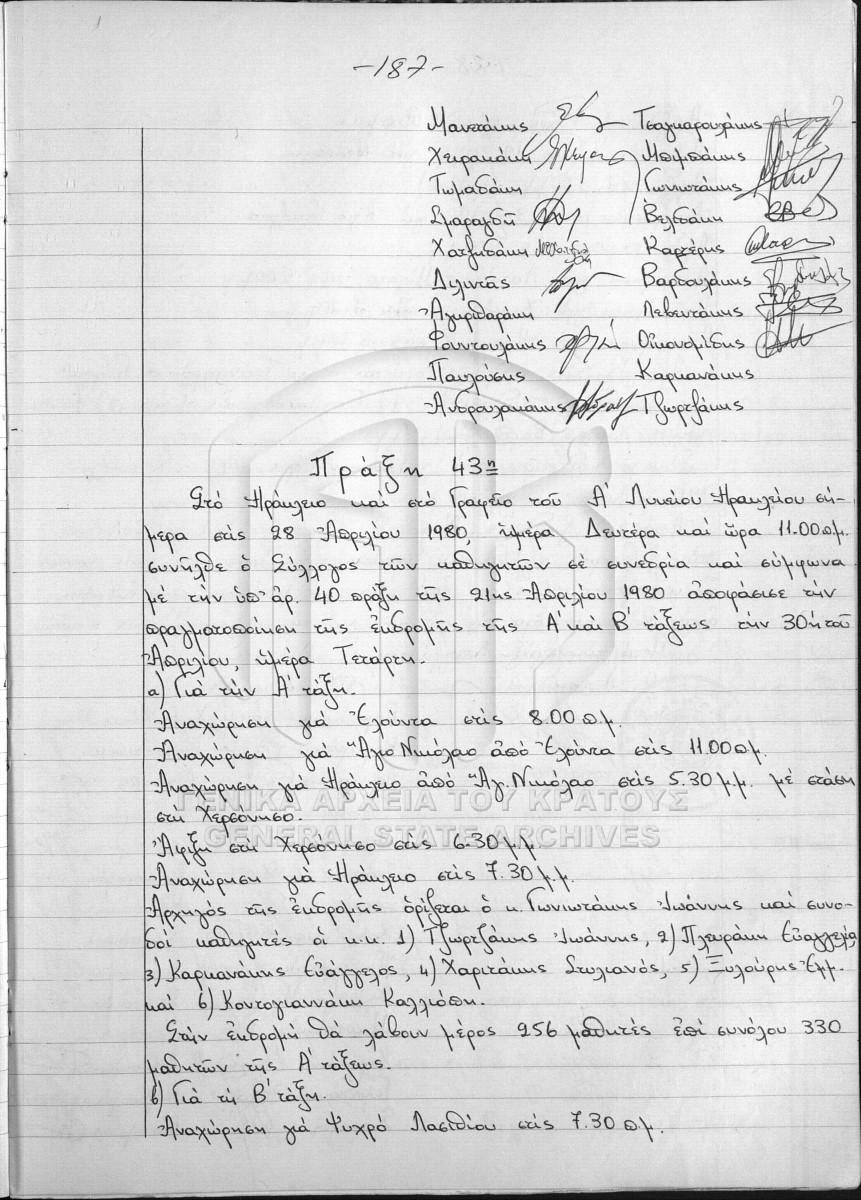 -187-
Μανετάκης Τσαγκαρουλάκης
Χειρακάκη Μπιμπάκης
Τωμαδάκη Γωνιωτάκης
Σμαραγδή Βελδάκη
Χατζηδάκη Καρτέρης
Διλιντάς Βαρδουλάκης
Ἀγκριθαράκη Λεβεντάκης
Φουντουλάκης Οἰκονομίδης
Παυλούσης Καρκανάκης
Ἀνδρουλακάκης Τζωρτζάκης
Πράξη 43η
Στό Ἡράκλειο καί στό Γραφεῖο τοῦ Α' Λυκείου Ἡρακλείου σή-
μερα στίς 28 Ἀπριλίου 1980, ἡμέρα Δευτέρα καί ὥρα 11.00 π.μ.
συνῆλθε ὁ Σύλλογος τῶν καθηγητῶν σέ συνεδρία καί σύμφωνα
μέ τήν ὑπ' ἀρ. 40 πράξη τῆς 21ης Ἀπριλίου 1980 ἀποφάσισε τήν
πραγματοποίηση τῆς ἐκδρομῆς τῆς Α' καί Β' τάξεως τήν 30ή τοῦ
Ἀπριλίου, ἡμέρα Τετάρτη.
α) Γιά τήν Α' τάξη.
Ἀναχώρηση γιά Ἐλούντα στίς 8.00 π.μ.
Ἀναχώρηση γιά Ἅγιο Νικόλαο ἀπό Ἐλούντα στίς 11.00 π.μ.
Ἀναχώρηση γιά Ἡράκλειο ἀπό Ἅγ. Νικόλαο στίς 5.30 μ.μ. μέ στάση
στή Χερσόνησο.
Ἄφιξη στή Χερσόνησο στίς 6.30 μ.μ
Ἀναχώρηση γιά Ἡράκλειο στίς 7.30 μ.μ.
Ἀρχηγός τῆς ἐκδρομῆς ὁρίζεται ὁ κ. Γωνιωτάκης Ἰωάννης καί συνο-
δοί καθηγητές οἱ κ.κ. 1) Τζωρτζάκης Ἰωάννης, 2) Πλευράκη Εὐαγγελία
3) Καρκανάκης Εὐάγγελος, 4) Χαριτάκης Στυλιανός, 5) Ξυλούρης Ἐμμ.
καί 6) Κοντογιαννάκη Καλλιόπη.
Στήν ἐκδρομή θά λάβουν μέρος 256 μαθητές ἐπί συνόλου 330
μαθητῶν τῆς Α' τάξεως.
β) Γιά τή Β' τάξη.
Ἀναχώρηση γιά Ψυχρό Λασιθίου στίς 7.30 π.μ.
ΓΕΝΙΚΑ ΑΡΧΕΙΑ ΤΟΥ ΚΡΑΤΟΥΣ
GENERAL STATE ARCHIVES